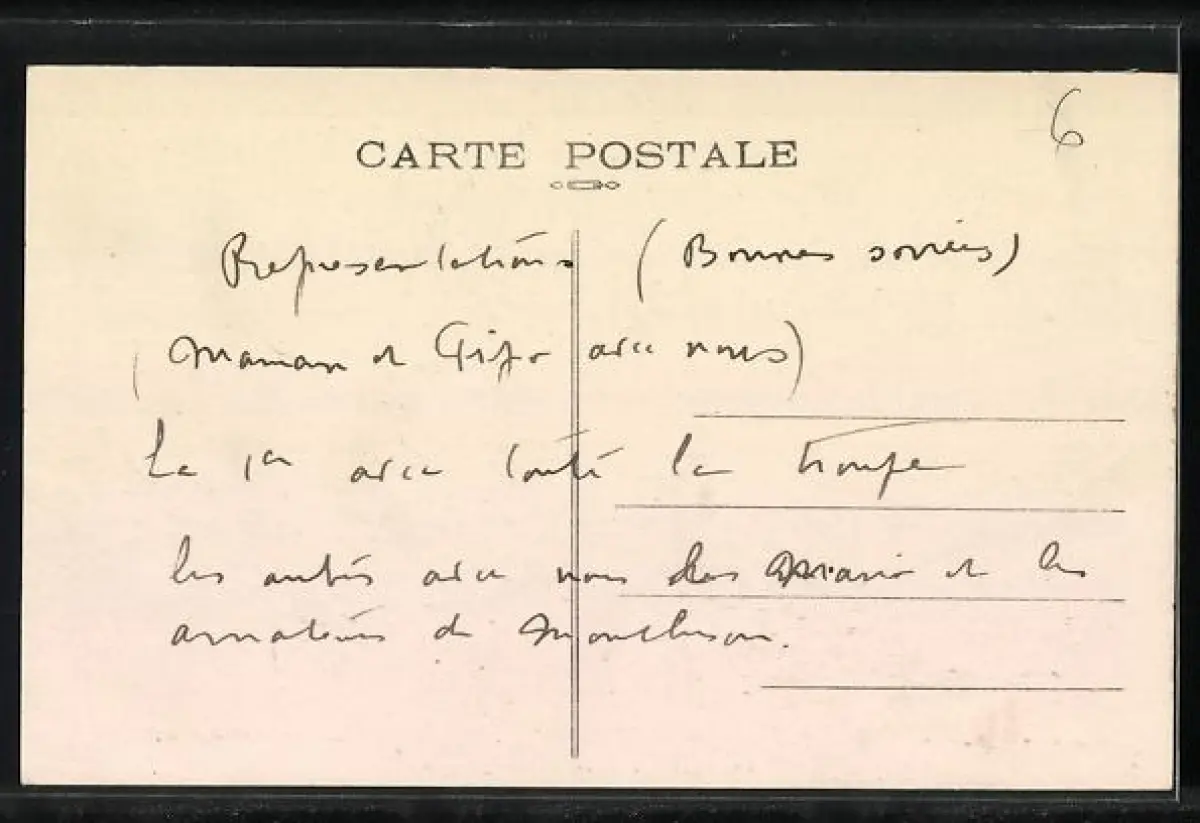 6
CARTE POSTALE
Representations (Bonnes soirées)
(Maman et avec nous)
La 1re avec toute la troupe
les autres avec nous des et les
amateurs de Montluçon.